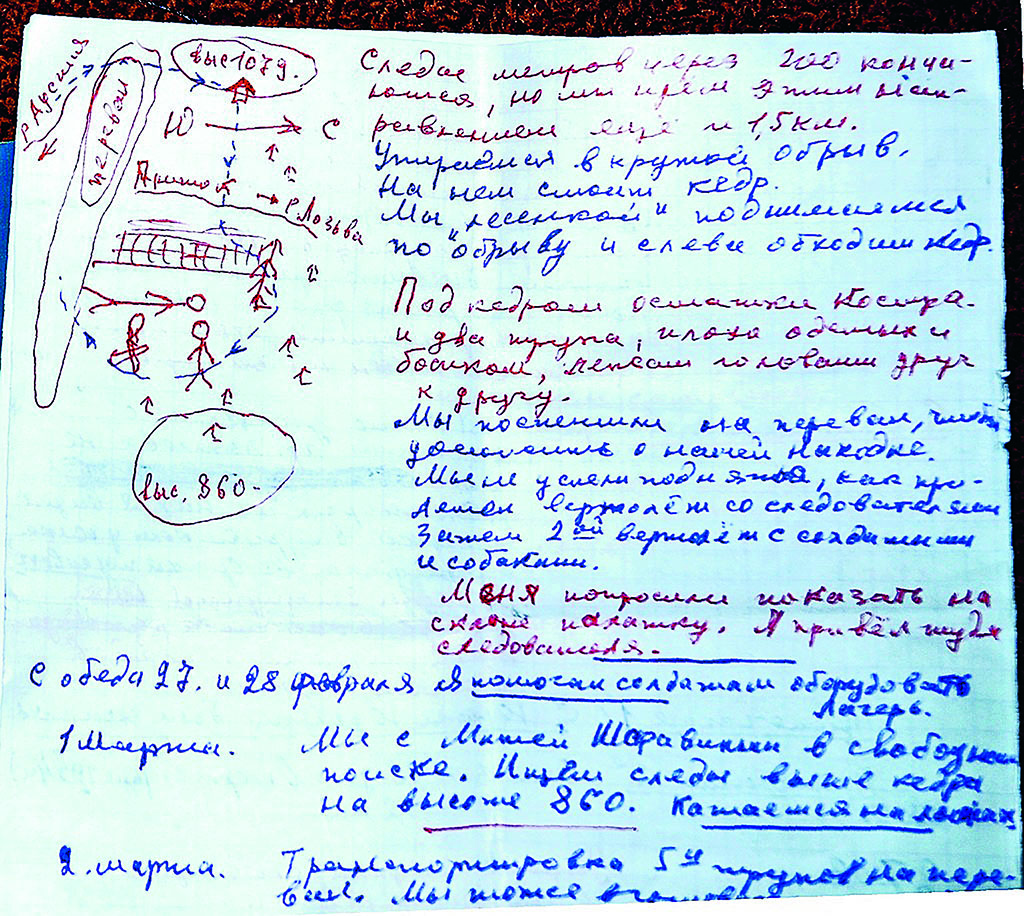 выс 1079.
р Ауспия
перевал
Ю → С
Приток
р Лозьва
выс. 860.
Следы метров через 200 кончи-
лись, но мы идём этим нап-
равлением ещё и 1,5 км.
Упираемся в крутой обрыв.
На нем стоит кедр.
Мы „лесенкой" поднимаемся
по обрыву и слева обходим кедр.
Под кедром остатки костра
и два трупа, плохо одетых и
босиком, лежат головами друг
к другу.
Мы поспешили на перевал, чтобы
доложить о нашей находке.
Мы не успели подняться, как при-
летел вертолёт со следователем
Затем 2ой вертолёт с солдатами
и собаками.
Меня попросили показать на
склоне палатку. Я привёл туда
следователя.
С обеда 27. и 28 февраля я помогал солдатам оборудовать
лагерь.
1 Марта. Мы с Мишей Шаравиным в свободном
поиске. Ищем следы выше кедра
на высоте 860. Катаемся на лыжах
2. марта. Транспортировка 5и трупов на пере-
вал. Мы тоже